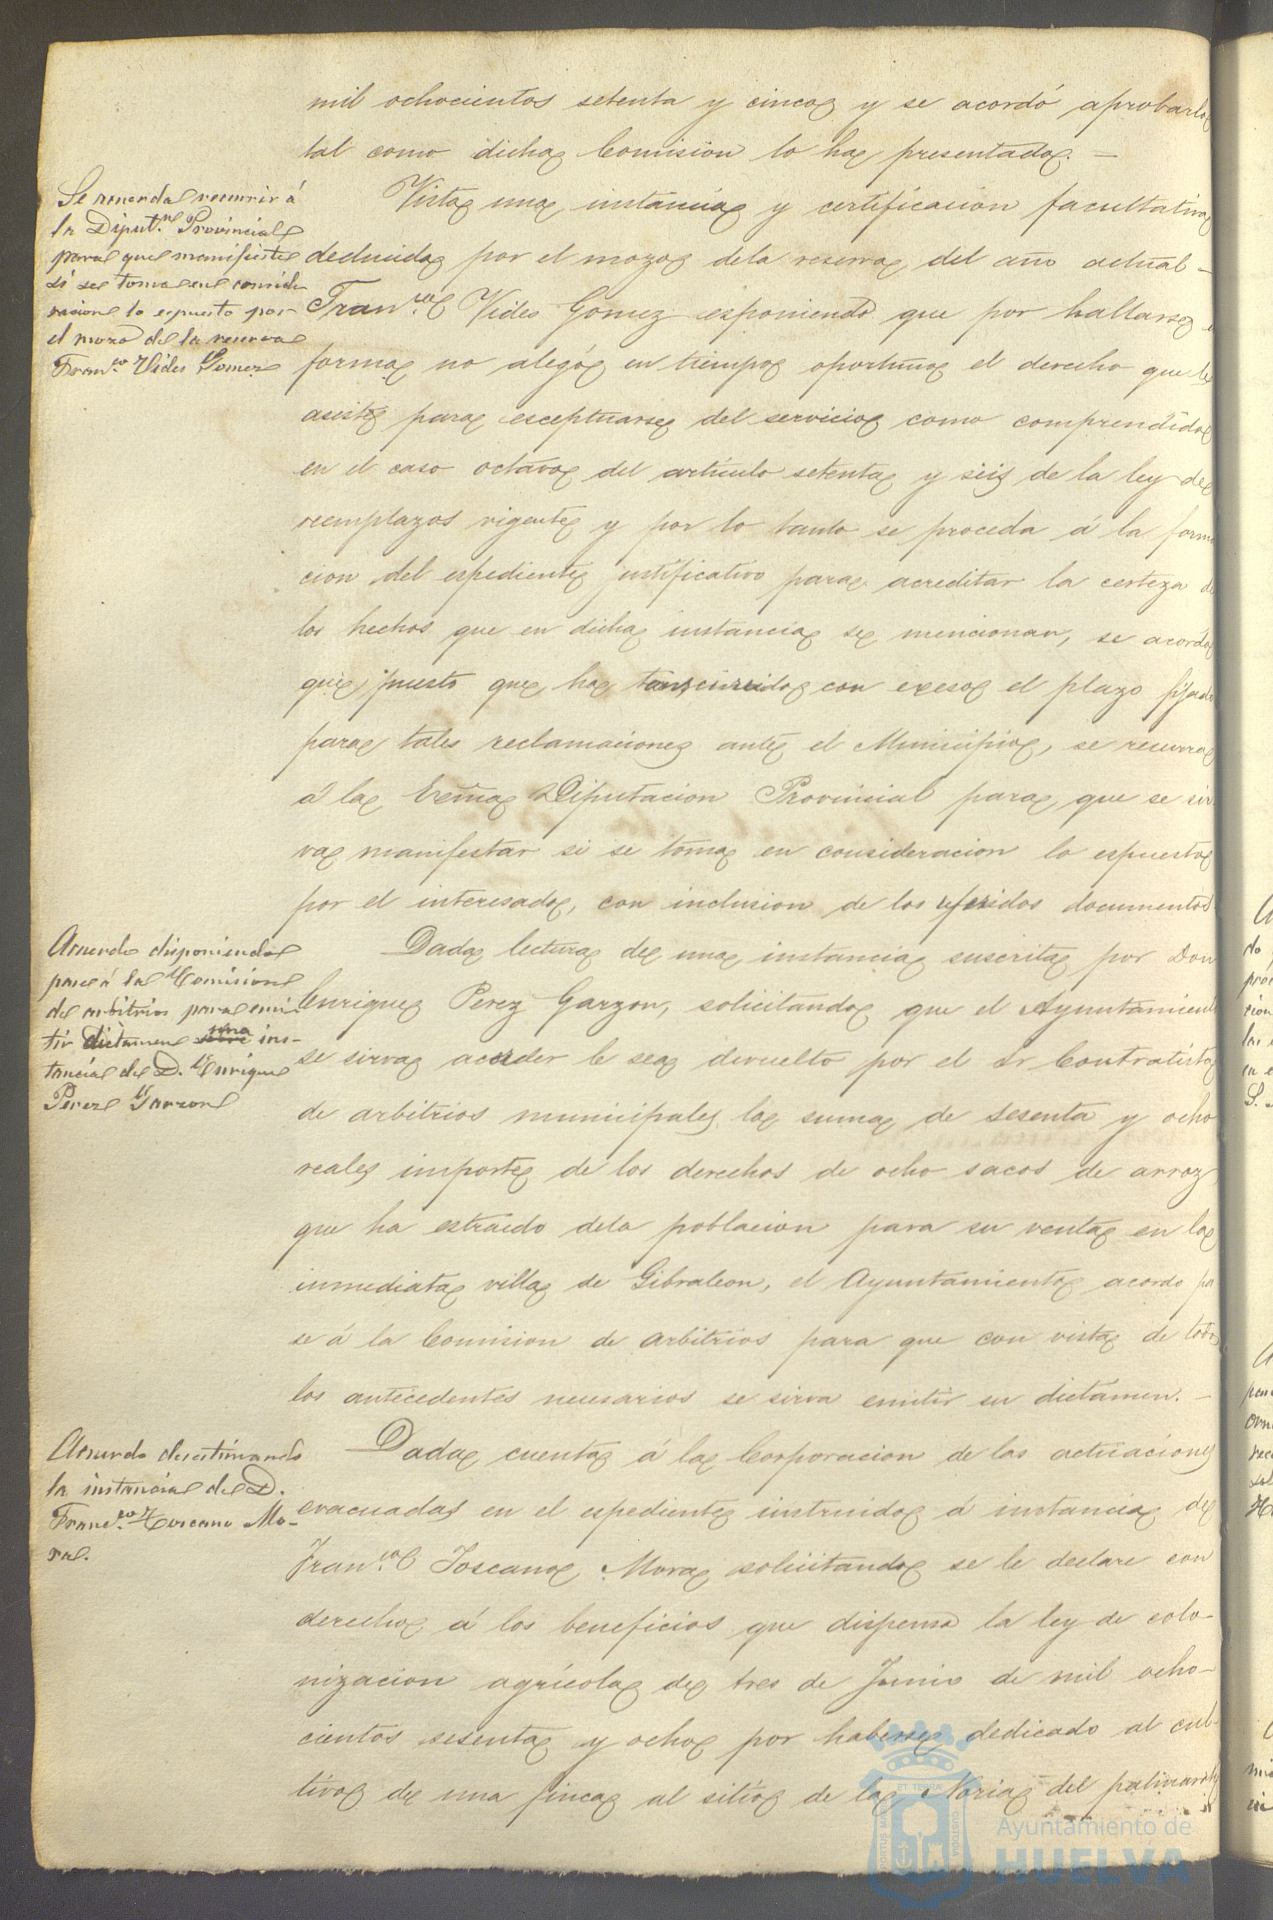 mil ochocientos setenta y cinco y se acordó aprobarlo
tal como dicha Comision lo ha presentado. —
Se acuerda recurrir á
la Diput.n Provincial
para que manifieste
si se toma en conside-
racion lo espuesto por
el mozo de la reserva
Fran.co Vides Gomez
Vista una instancia y certificacion facultativa
deducida por el mozo dela reserva del año actual -
Fran.co Vides Gomez esponiendo que por hallarse
forma no alegó en tiempo oportuno el derecho que le
asiste para esceptuarse del servicio como comprendido
en el caso octavo del articulo setenta y seis de la ley de
reemplazos vigente y por lo tanto se proceda á la forma
cion del espediente justificativo para acreditar la certeza de
los hechos que en dicha instancia se mencionan, se acordó
que, puesto que ha con exeso el plazo fijado
para tales reclamaciones ante el Municipio, se recurra
á la Exma Diputacion Provincial para que se sir
va manifestar si se toma en consideracion lo espuesto
por el interesado, con inclusion de los referidos documentos
Acuerdo disponiendo
pase á la Comision
de arbitrios para emi-
tir dictamen una ins-
tancia de D. Enrique
Perez Garzon
Dada lectura de una instancia suscrita por Don
Enrique Perez Garzon, solicitando que el Ayuntamiento
se sirva acceder le sea devuelto por el Sr Contratista
de arbitrios municipales la suma de sesenta y ocho
reales importe de los derechos de ocho sacos de arroz
que ha estraido dela poblacion para su venta en la
inmediata villa de Gibraleon, el Ayuntamiento acordo pa
se á la Comision de arbitrios para que con vista de todos
los antecedentes necesarios se sirva emitir su dictamen. —
Acuerdo desestimando
la instancia de D.
Franc.co Toscano Mo-
ra.
Dada cuenta á la Corporacion de las actuaciones
evacuadas en el espediente instruido á instancia de
Fran.co Toscano Mora solicitando se le declare con
derecho á los beneficios que dispensa la ley de colo-
nizacion agrícola de tres de Junio de mil ocho-
cientos sesenta y ocho por haberse dedicado al cul-
tivo de una finca al sitio de la Noria del
PORTUS MARIS ET TERRAE CUSTODIA
Ayuntamiento de
HUELVA